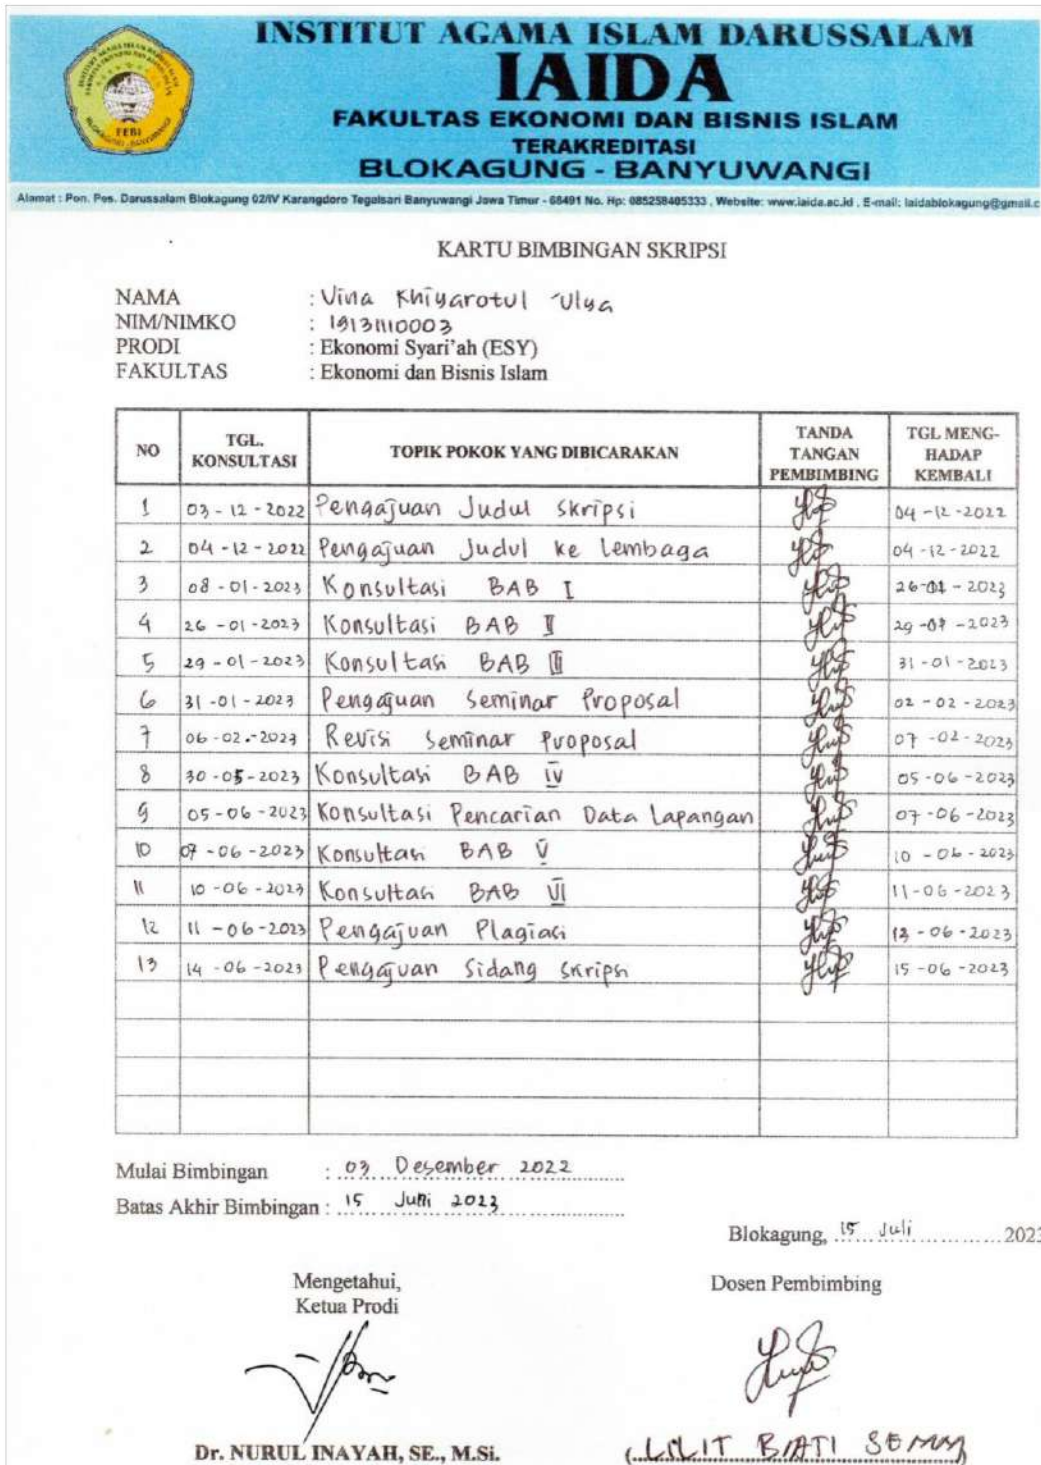 INSTITUT AGAMA ISLAM DARUSSALAM
IAIDA
FAKULTAS EKONOMI DAN BISNIS ISLAM
TERAKREDITASI
BLOKAGUNG - BANYUWANGI
FEBI
Alamat : Pon. Pes. Darussalam Blokagung 02/IV Karangdoro Tegalsari Banyuwangi Jawa Timur - 68491 No. Hp: 085258405333 , Website: www.iaida.ac.id , E-mail: iaidablokagung@gmail.c
KARTU BIMBINGAN SKRIPSI
NAMA : Vina Khiyarotul 'Ulya
NIM/NIMKO : 19131110003
PRODI : Ekonomi Syari'ah (ESY)
FAKULTAS : Ekonomi dan Bisnis Islam
NO TGL. KONSULTASI TOPIK POKOK YANG DIBICARAKAN TANDA TANGAN PEMBIMBING TGL MENG-HADAP KEMBALI
1 03 - 12 - 2022 Pengajuan Judul Skripsi 04 - 12 - 2022
2 04 - 12 - 2022 Pengajuan Judul ke Lembaga 04 - 12 - 2022
3 08 - 01 - 2023 Konsultasi BAB I 26 - 01 - 2023
4 26 - 01 - 2023 Konsultasi BAB II 29 - 01 - 2023
5 29 - 01 - 2023 Konsultasi BAB III 31 - 01 - 2023
6 31 - 01 - 2023 Pengajuan Seminar Proposal 02 - 02 - 2023
7 06 - 02 - 2023 Revisi Seminar Proposal 07 - 02 - 2023
8 30 - 05 - 2023 Konsultasi BAB IV 05 - 06 - 2023
9 05 - 06 - 2023 Konsultasi Pencarian Data Lapangan 07 - 06 - 2023
10 07 - 06 - 2023 Konsultasi BAB V 10 - 06 - 2023
11 10 - 06 - 2023 Konsultasi BAB VI 11 - 06 - 2023
12 11 - 06 - 2023 Pengajuan Plagiasi 13 - 06 - 2023
13 14 - 06 - 2023 Pengajuan Sidang Skripsi 15 - 06 - 2023
Mulai Bimbingan : 03 Desember 2022
Batas Akhir Bimbingan : 15 Juni 2023
Blokagung, 15 Juli 2023
Mengetahui,
Ketua Prodi
Dosen Pembimbing
Dr. NURUL INAYAH, SE., M.Si.
(LILIT BIATI